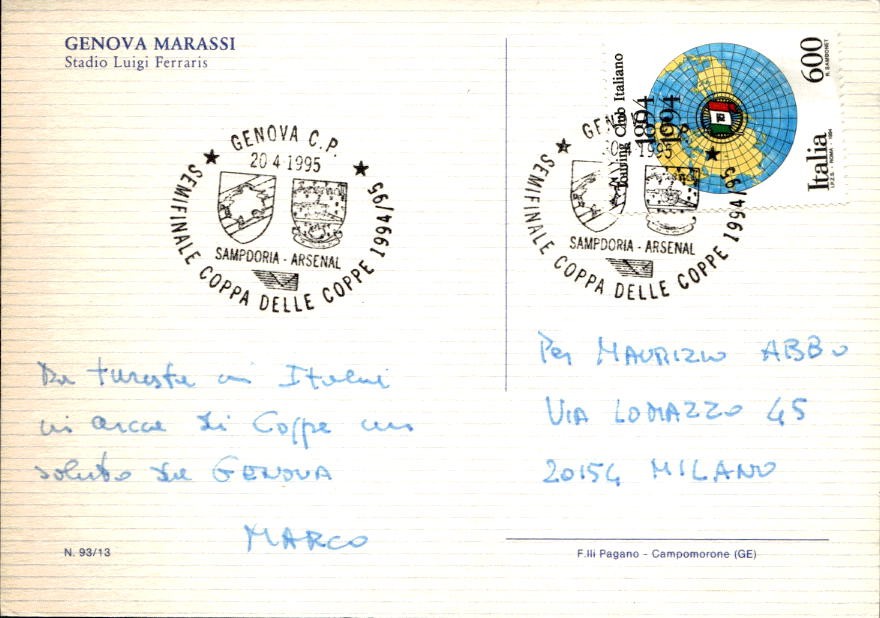 GENOVA MARASSI
Stadio Luigi Ferraris
GENOVA C.P.
20 4 1995
SEMIFINALE COPPA DELLE COPPE 1994/95
SAMPDORIA - ARSENAL
Touring Club Italiano
1894
1994
600
R. SAMBONET
Italia
I.P.Z.S. - ROMA - 1994
GENOVA C.P.
20 4 1995
SEMIFINALE COPPA DELLE COPPE 1994/95
SAMPDORIA - ARSENAL
Da turista in Italia
in cerca di Coppe un
saluto da GENOVA
MARCO
Per MAURIZIO ABBO
VIA LOMAZZO 45
20154 MILANO
N. 93/13
F.lli Pagano - Campomorone (GE)